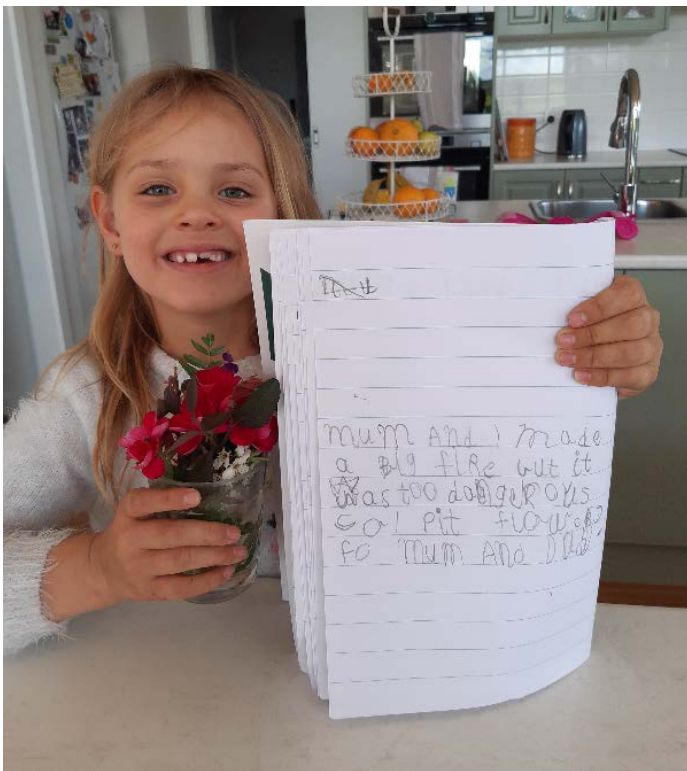 mum And I made
a Big fiRe but it
was too dangeRous
so I pit flowers
fo mum And DAD